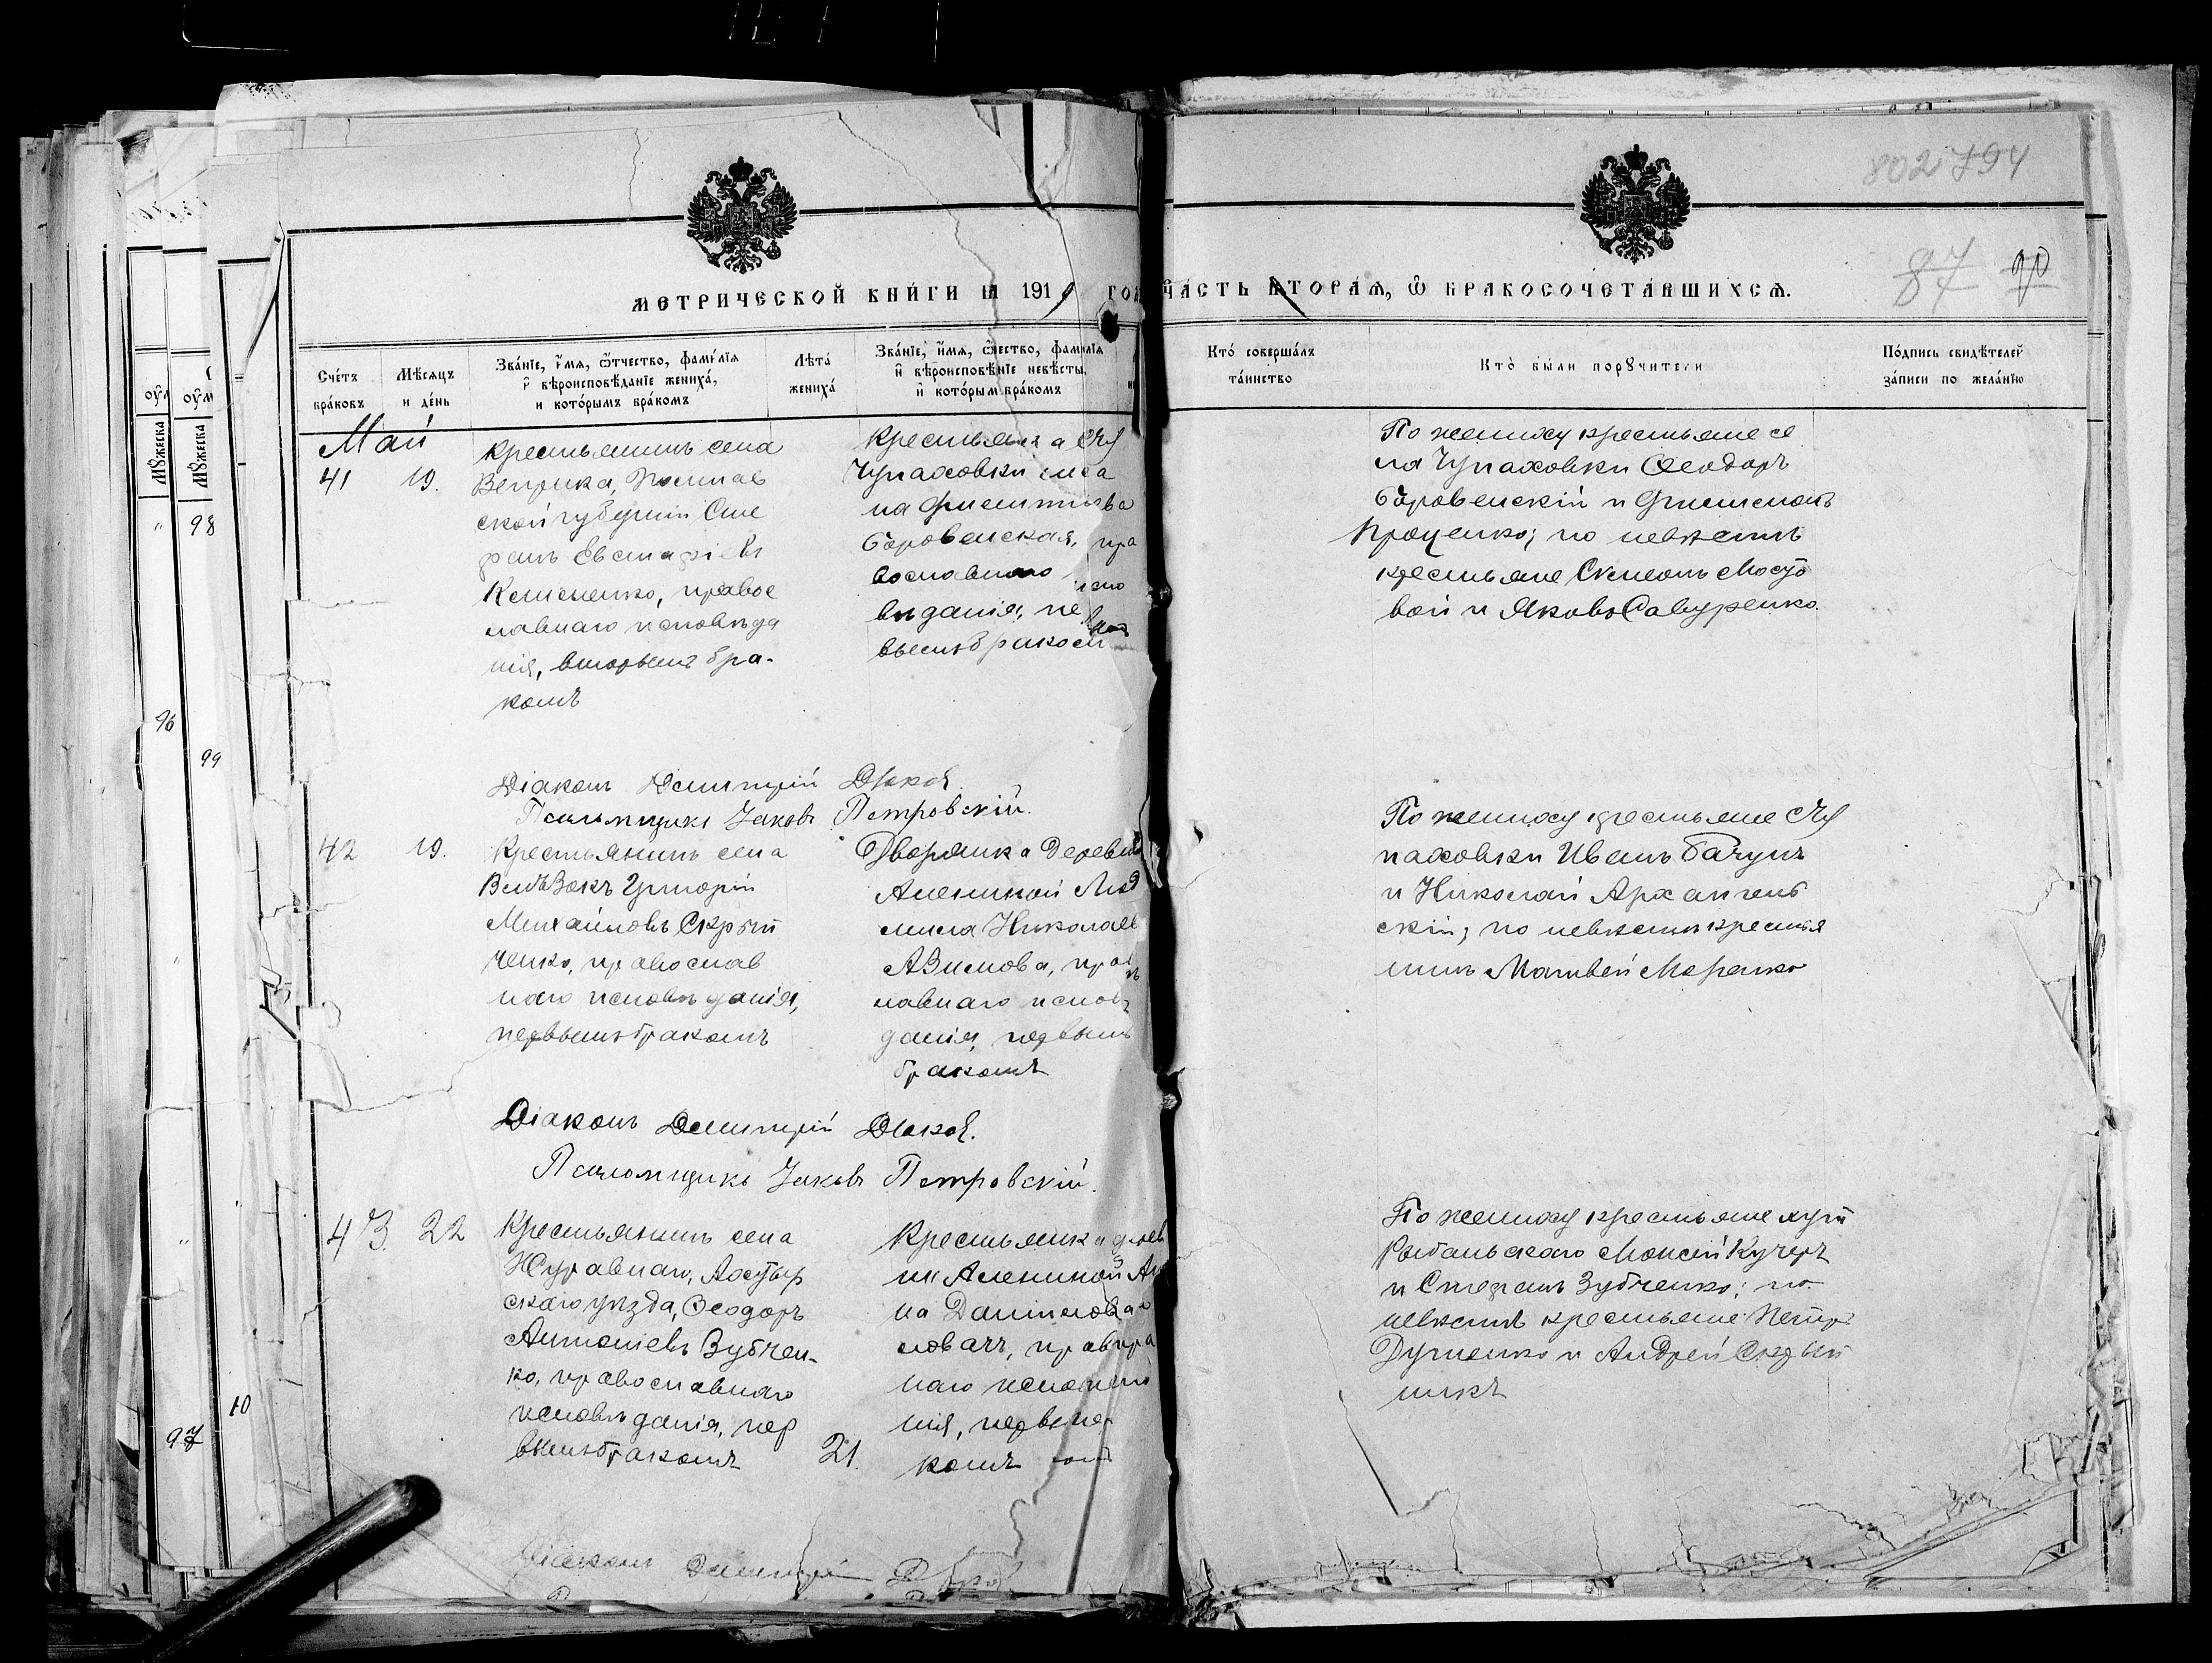 802 794
87 90
МЕТРИЧЕСКОЙ КНИ́ГИ НА 1919 ГОДЪ ЧАСТЬ ВТОРА́Я, Ѡ БРАКОСОЧЕТА́ВШИХСЯ.
Сче́тъ бра́ковъ
Мѣ́сяцъ и де́нь
Зва́нїе, и́мя, ѻ́тчество, фами́лїя и҆ вѣроисповѣ́данїе жениха́, и кото́рымъ бра́комъ
Лѣта́ жениха́
Зва́нїе, и́мя, ѻ́чество, фами́лїя и҆ вѣроисповѣ́нїе невѣ́сты, и҆ кото́рымъ бра́комъ
Кто́ соверша́лъ та́инство
Кто́ бы́ли порꙋчи́тели
По́дпись свидѣ́телей за́писи по жела́нїю
Май
41 19.
Крестьянинъ села
Веприка, Полтав
ской губерніи Сте
фанъ Евстафіевъ
правос
лавнаго исповѣда
нія, вторымъ бра-
комъ
Крестьянка с Чу
Чупаховки
Боровенская, пра
вославнаго испо
вѣданія, пер
вымъ бракомъ
По жениху крестьяне се
ла Чупаховки Ѳеодоръ
Боровенскій и
Проценко; по невѣстѣ
крестьяне Симеонъ Мосто
вой и Яковъ Савуренко.
Діаконъ Димитрій Дьков
Псаломщикъ Іаковъ Петровскій.
42 19.
Крестьянинъ села
Григорій
Михайловъ Скрып
ченко, православ
наго исповѣданія,
первымъ бракомъ
Дворянка деревни
Алениной Люд
мила Николаев
Азимова, прав
лавнаго исповѣ
данія, первымъ
бракомъ
По жениху крестьяне с Чу
паховки Иванъ Бачунъ
и Николай Архангель
скій; по невѣстѣ крестья
нинъ Матвей Меренко
Діаконъ Димитрій Дьков.
Псаломщикъ Іаковъ Петровскій.
43. 22
Крестьянинъ села
Журавнаго, Ахтыр
скаго уѣзда, Ѳеодоръ
Антоніевъ Зубчен-
ко, православнаго
исповѣданія, пер
вымъ бракомъ 21.
Крестьянка дерев
ни Алениной Ан
на Даниилова
православ
наго исповѣда
нія, первымъ
комъ
По жениху крестьяне хут
Рыбальскаго Моисей Кучеръ
и Стефанъ Зубченко; по
невѣстѣ крестьяне Петръ
и Андрей Скрып
никъ
Діаконъ Димитрій
98
96
99
97
10